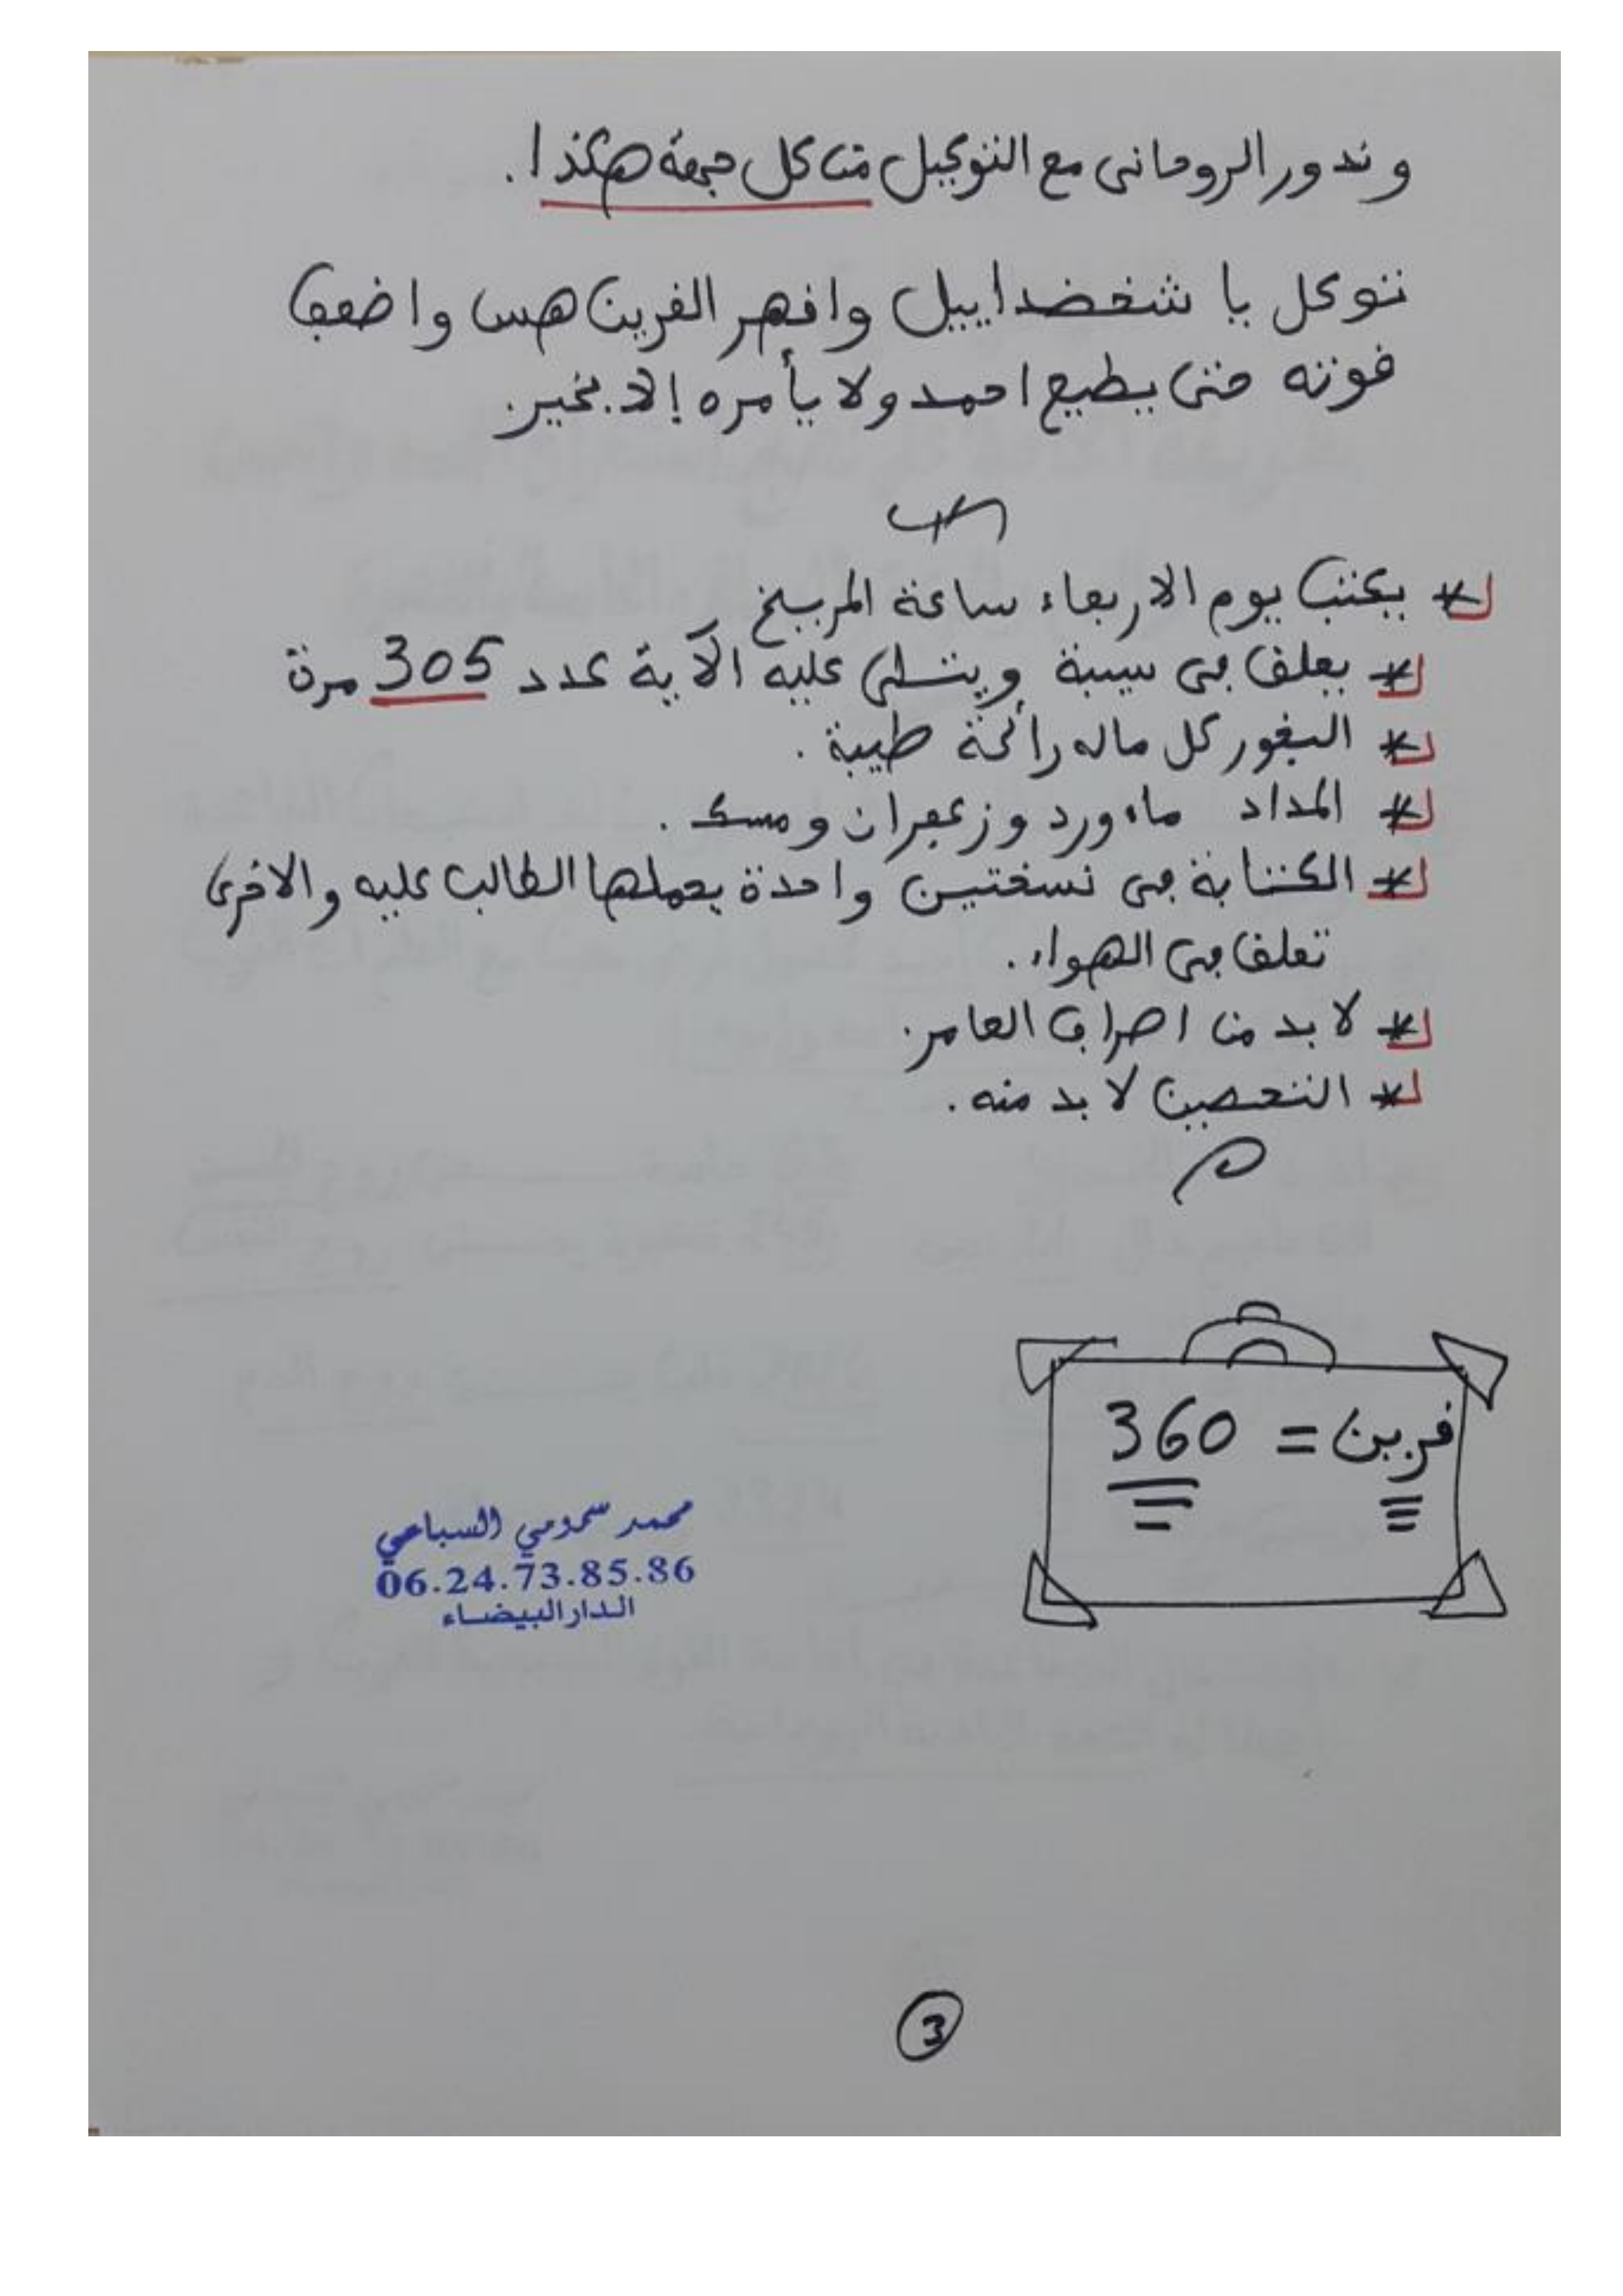 وندور الروحانى مع التوكيل من كل جهة هكذا.
توكل يا شغضداييل واقهر القرين هس واضعف
قوته حتى يطيع احمد ولا يأمره إلا بخير.
* يكتب يوم الاربعاء ساعة المريخ
* يعلق فى سيبة ويتلى عليه الآية عدد 305 مرة
* البخور كل ماله رائحة طيبة.
* المداد ماء ورد وزعفران ومسك.
* الكتابة فى نسختين واحدة يحملها الطالب عليه والاخرى
تعلق فى الهواء.
* لا بد من اصراف العامر.
* التحصين لا بد منه.
قرين = 360
محمد سمومي السباعي
06.24.73.85.86
الدار البيضاء
3